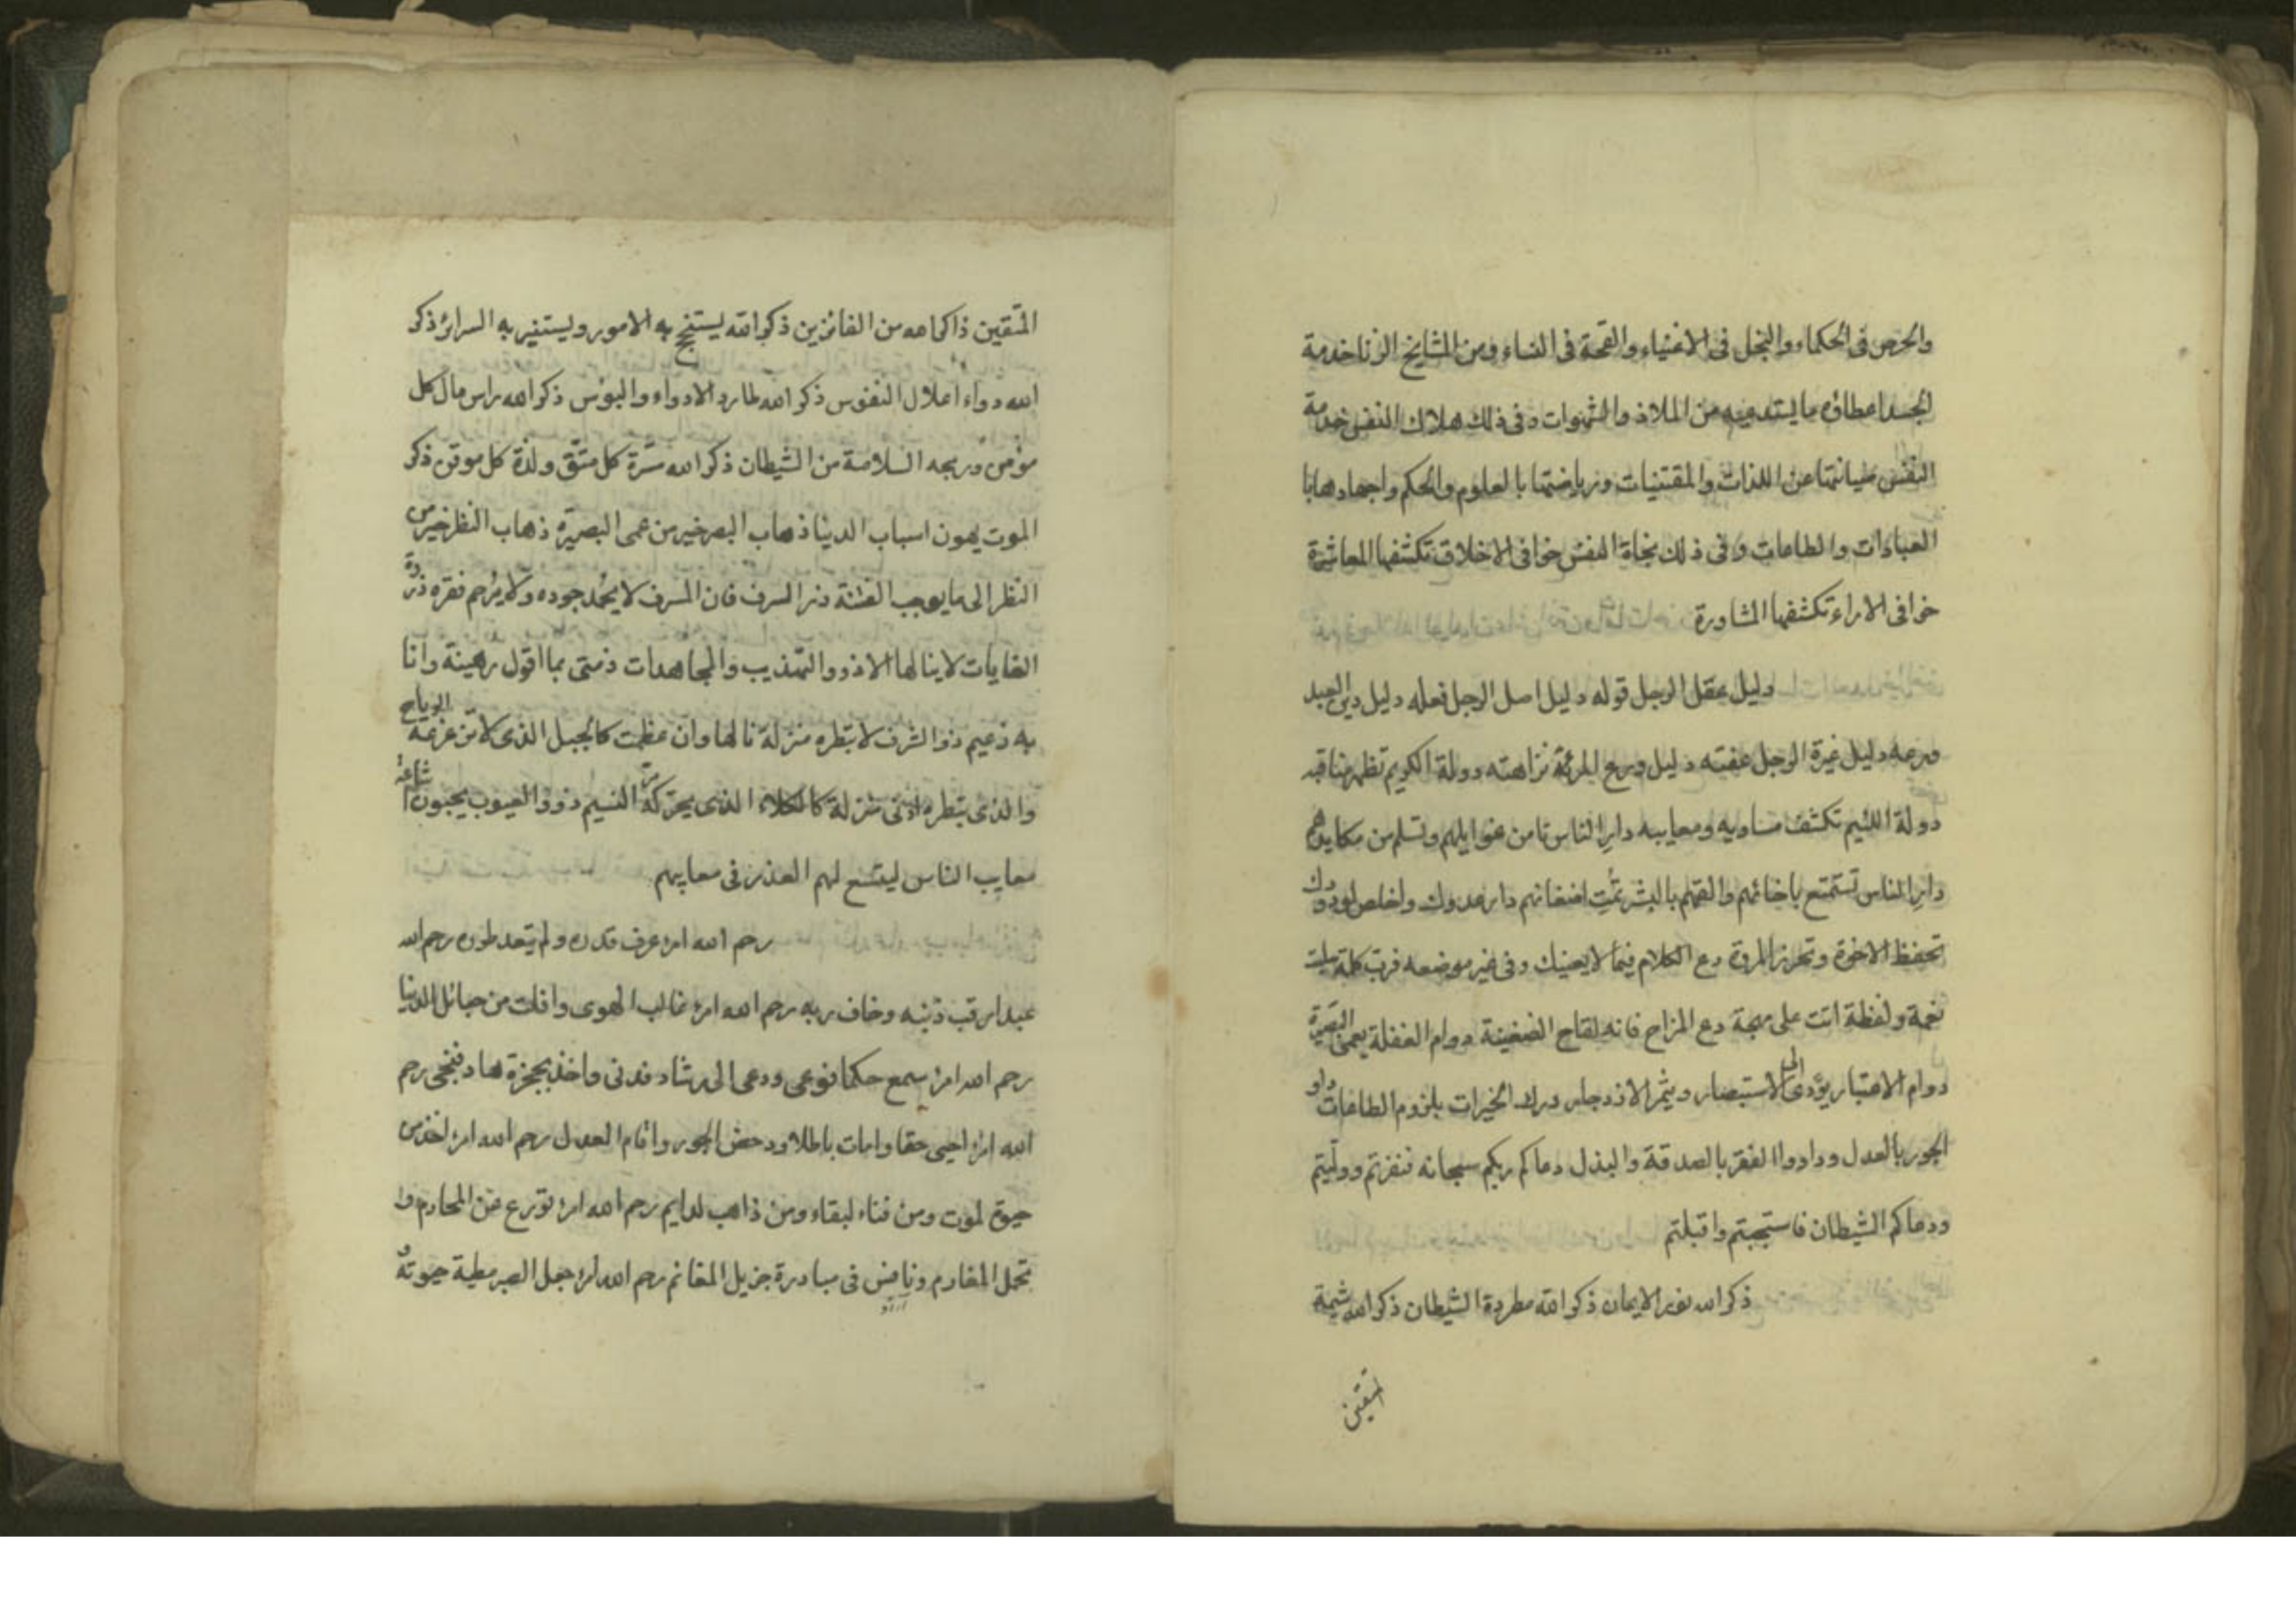 والحرص فى الحكماء والبخل فى الاغنياء والقحة فى النساء ومن المشايخ الزنا خدمة
الجسد اعطاؤه ما يستدعيه من الملاذ والشهوات وفى ذلك هلاك النفس خدمة
النفس صيانتها عن اللذات والمقتنيات ورياضتها بالعلوم والحكم واجهادها با
العبادات والطاعات وفى ذلك نجاة النفس خوافى الاخلاق تكشفها المعاشرة
خوافى الاراء تكشفها المشاورة
دليل عقل الرجل قوله دليل اصل الرجل فعله دليل دين العبد
ورعه دليل غيرة الرجل عفته دليل ورع المرئة نزاهته دولة الكريم تظهر مناقبه
دولة اللئيم تكشف مساويه ومعايبه دارِ الناس تامن غوايلهم وتسلم من مكايدهم
دارِ الناس تستمتع باخائهم والقهم بالبشر تمُت اضغانهم دار عدوك واخلص لودودك
تحفظ الاخوة وتحرز المروة دع الكلام فيما لا يعنيك وفى غير موضعه فرب كلمة سلبت
نعمة ولفظة اتت على مهجة دع المزاح فانه لقاح الضغينة دوام الغفلة يعمى البصيرة
دوام الاعتبار يؤدى الى الاستبصار ويثمر الازدجار درك الخيرات بلزوم الطاعات داو
الجور بالعدل وداووا الفقر بالصدقة والبذل دعاكم ربكم سبحانه فنفرتم وولّيتم
ودعاكم الشيطان فاستجبتم واقبلتم
ذكر الله نور الايمان ذكر الله مطردة الشيطان ذكر الله شيمة
المتقين
المتّقين ذاكر الله من الفائزين ذكر الله يستنجح به الامور ويستنير به السرائر ذكر
الله دواء اعلال النفوس ذكر الله طارد الادواء والبؤس ذكر الله راس مال كل
مؤمن وربحه السلامة من الشيطان ذكر الله مسّرة كل متّق ولذة كل موقن ذكر
الموت يهون اسباب الدينا ذهاب البصر خير من عمى البصيرة ذهاب النظر خير من
النظر الى ما يوجب الفتنة ذر السرف فان المسرف لا يحمد جوده ولا يرحم فقره ذروة
الغايات لا ينالها الا ذوو التهذيب والمجاهدات ذمتى بما اقول رهينة وانا
به زعيم ذو الشرف لا تبطره منزلة نالها وان عظمت كالجبل الذى لا تزعزعه الرياح
والدنى تبطره ادنى منزلة كالكلاء الذى يحركه مر النسيم ذوو العيوب يحبون اشاعة
معايب الناس ليتسع لهم العذر فى معايبهم
رحم الله امرء عرف قدره ولم يتعد طوره رحم الله
عبدا رقب ذنبه وخاف ربه رحم الله امرء غالب الهوى وافلت من حبائل الدنيا
رحم الله امرء سمع حكما فوعى ودعى الى رشاد فدنى واخذ بحجزة هاد فنجى رحم
الله امرء احيى حقا وامات باطلا ودحض الجور واقام العدل رحم الله امرء اخذ من
حيوة لموت ومن فناء لبقاء ومن ذاهب لدايم رحم الله امرء تورع عن المحارم و
تحمل المغارم ونافس فى مبادرة جزيل المغانم رحم الله امرء جعل الصبر مطية حيوته و